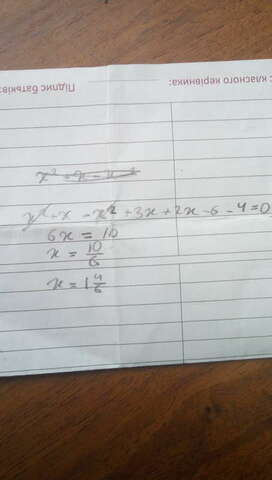 Підпис батьків:
с класного керівника:
x² - x - x²
x² - x - x² + 3x + 2x - 6 - 4 = 0
6x = 10
x = 10/6
x = 1 4/6